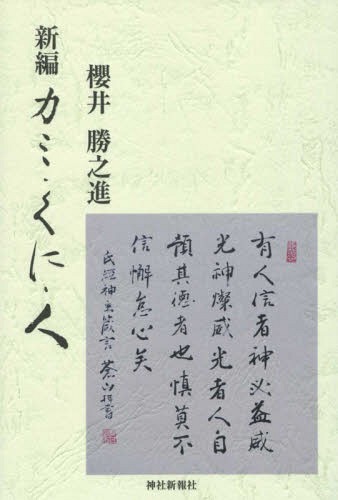 新編 カミ・くに・人
櫻井 勝之進
有人信者神必益威
光神燦威光者人自
其徳者也慎莫不
信懈怠心矣
氏經神主箴言
神社新報社